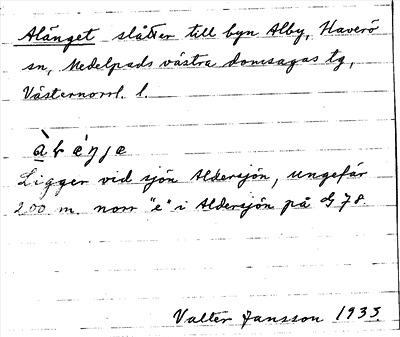 Alänget slåtter till byn Alby, Haverö
sn, Medelpads västra domsagas tg,
Västernorrl. l.
Ligger vid sjön Aldersjön, ungefär
200 m. norr "e" i Aldersjön på G 78.
Valter Jansson 1935.